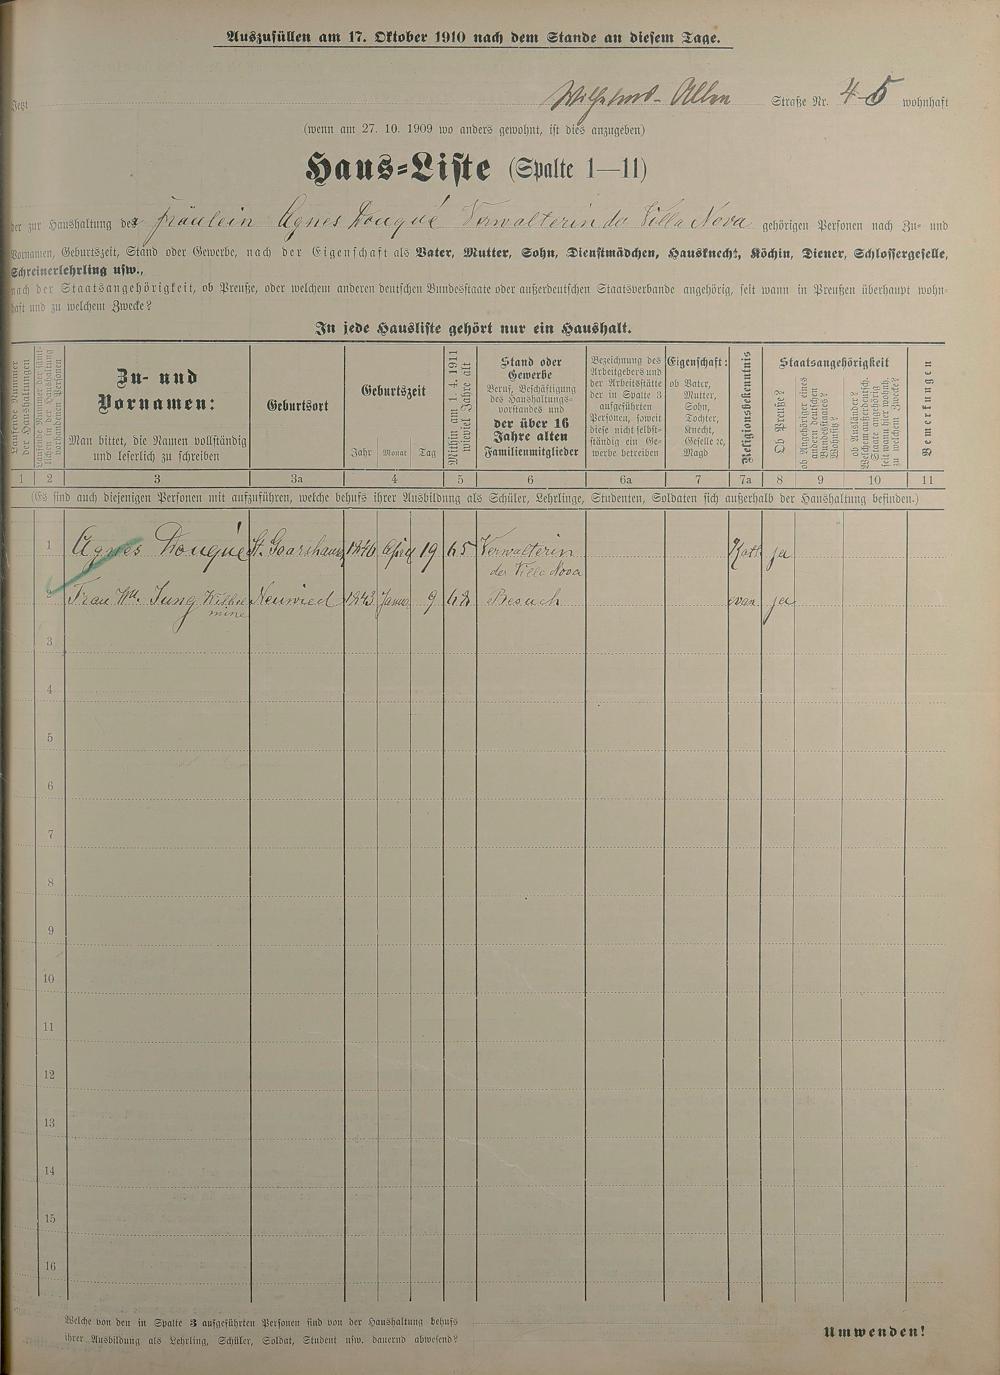 Auszufüllen am 17. Oktober 1910 nach dem Stande an diesem Tage.
Jetzt Wilhelms-Allee Straße Nr. 45 wohnhaft
(wenn am 27. 10. 1909 wo anders gewohnt, ist dies anzugeben)
Haus-Liste (Spalte 1—11)
der zur Haushaltung der Fräulein Agnes Douqué Verwalterin der Villa Nova gehörigen Personen nach Zu- und
Vornamen, Geburtszeit, Stand oder Gewerbe, nach der Eigenschaft als Vater, Mutter, Sohn, Dienstmädchen, Hausknecht, Köchin, Diener, Schlossergeselle,
Schreinerlehrling usw.,
nach der Staatsangehörigkeit, ob Preuße, oder welchem anderen deutschen Bundesstaate oder außerdeutschen Staatsverbande angehörig, seit wann in Preußen überhaupt wohn-
haft und zu welchem Zwecke?
In jede Hausliste gehört nur ein Haushalt.
Laufende Nummer der Haushaltungen
Laufende Nummer der sämt-
lichen in der Haushaltung
vorhandenen Personen
Zu- und
Vornamen:
Man bittet, die Namen vollständig
und leserlich zu schreiben
Geburtsort
Geburtszeit
Jahr Monat Tag
Mithin am 1. 4. 1911
wieviel Jahre alt
Stand oder
Gewerbe
Beruf, Beschäftigung
des Haushaltungs-
vorstandes und
der über 16
Jahre alten
Familienmitglieder
Bezeichnung des
Arbeitgebers und
der Arbeitsstätte
der in Spalte 3
aufgeführten
Personen, soweit
diese nicht selbst-
ständig ein Ge-
werbe betreiben
Eigenschaft:
ob Vater,
Mutter,
Sohn,
Tochter,
Knecht,
Geselle ꝛc,
Magd
Religionsbekenntnis
Staatsangehörigkeit
Ob Preuße?
ob Angehöriger eines
andern deutschen
Bundesstaates?
Wohnsitz?
ob Ausländer?
Welchem außerdeutsch.
Staate angehörig
seit wann hier wohnh.
zu welchem Zwecke?
Bemerkungen
1 2 3 3a 4 5 6 6a 7 7a 8 9 10 11
(Es sind auch diejenigen Personen mit aufzuführen, welche behufs ihrer Ausbildung als Schüler, Lehrlinge, Studenten, Soldaten sich außerhalb der Haushaltung befinden.)
1 Agnes Douqué St. Goarshausen 1846 April 19 65 Verwalterin Kath ja
der Villa Nova
2 Frau Ww. Jung Wilhel Neuwied 1843 Janua 9 68 Besuch evan. ja
mine
3
4
5
6
7
8
9
10
11
12
13
14
15
16
Welche von den in Spalte 3 aufgeführten Personen sind von der Haushaltung behufs
ihrer Ausbildung als Lehrling, Schüler, Soldat, Student usw. dauernd abwesend?
Umwenden!